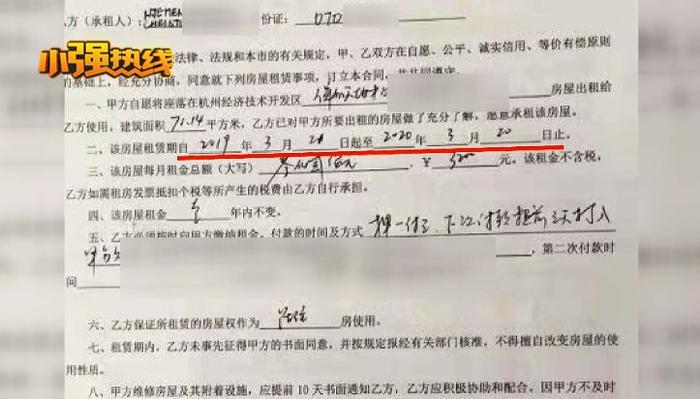 方（承租人）： 份证： 070
小强热线
法律、法规和本市的有关规定，甲、乙双方在自愿、公平、诚实信用、等价有偿原则
的基础上，经充分协商，同意就下列房屋租赁事项，订立本合同，共共同遵守。
一、甲方自愿将座落在杭州经济技术开发区 房屋出租给
乙方使用，建筑面积 71.14 平方米，乙方已对甲方所要出租的房屋做了充分了解，愿意承租该房屋。
二、该房屋租赁期自 2019 年 3 月 日起至 2020 年 3 月 20 日止。
三、该房屋每月租金总额（大写） ￥ 元。该租金不含税，
乙方如需租房发票抵扣个税等所产生的税费由乙方自行承担。
四、该房屋租金 年内不变。
五、乙方必须按时向甲方缴纳租金，付款的时间及方式 押一付三、下次付款提前 天打入
，第二次付款时
间
六、乙方保证所租赁的房屋权作为 居住 房使用。
七、租赁期内，乙方未事先征得甲方的书面同意，并按规定报经有关部门核准，不得擅自改变房屋的使
用性质。
八、甲方维修房屋及其附着设施，应提前 10 天书面通知乙方，乙方应积极协助和配合。因甲方不及时